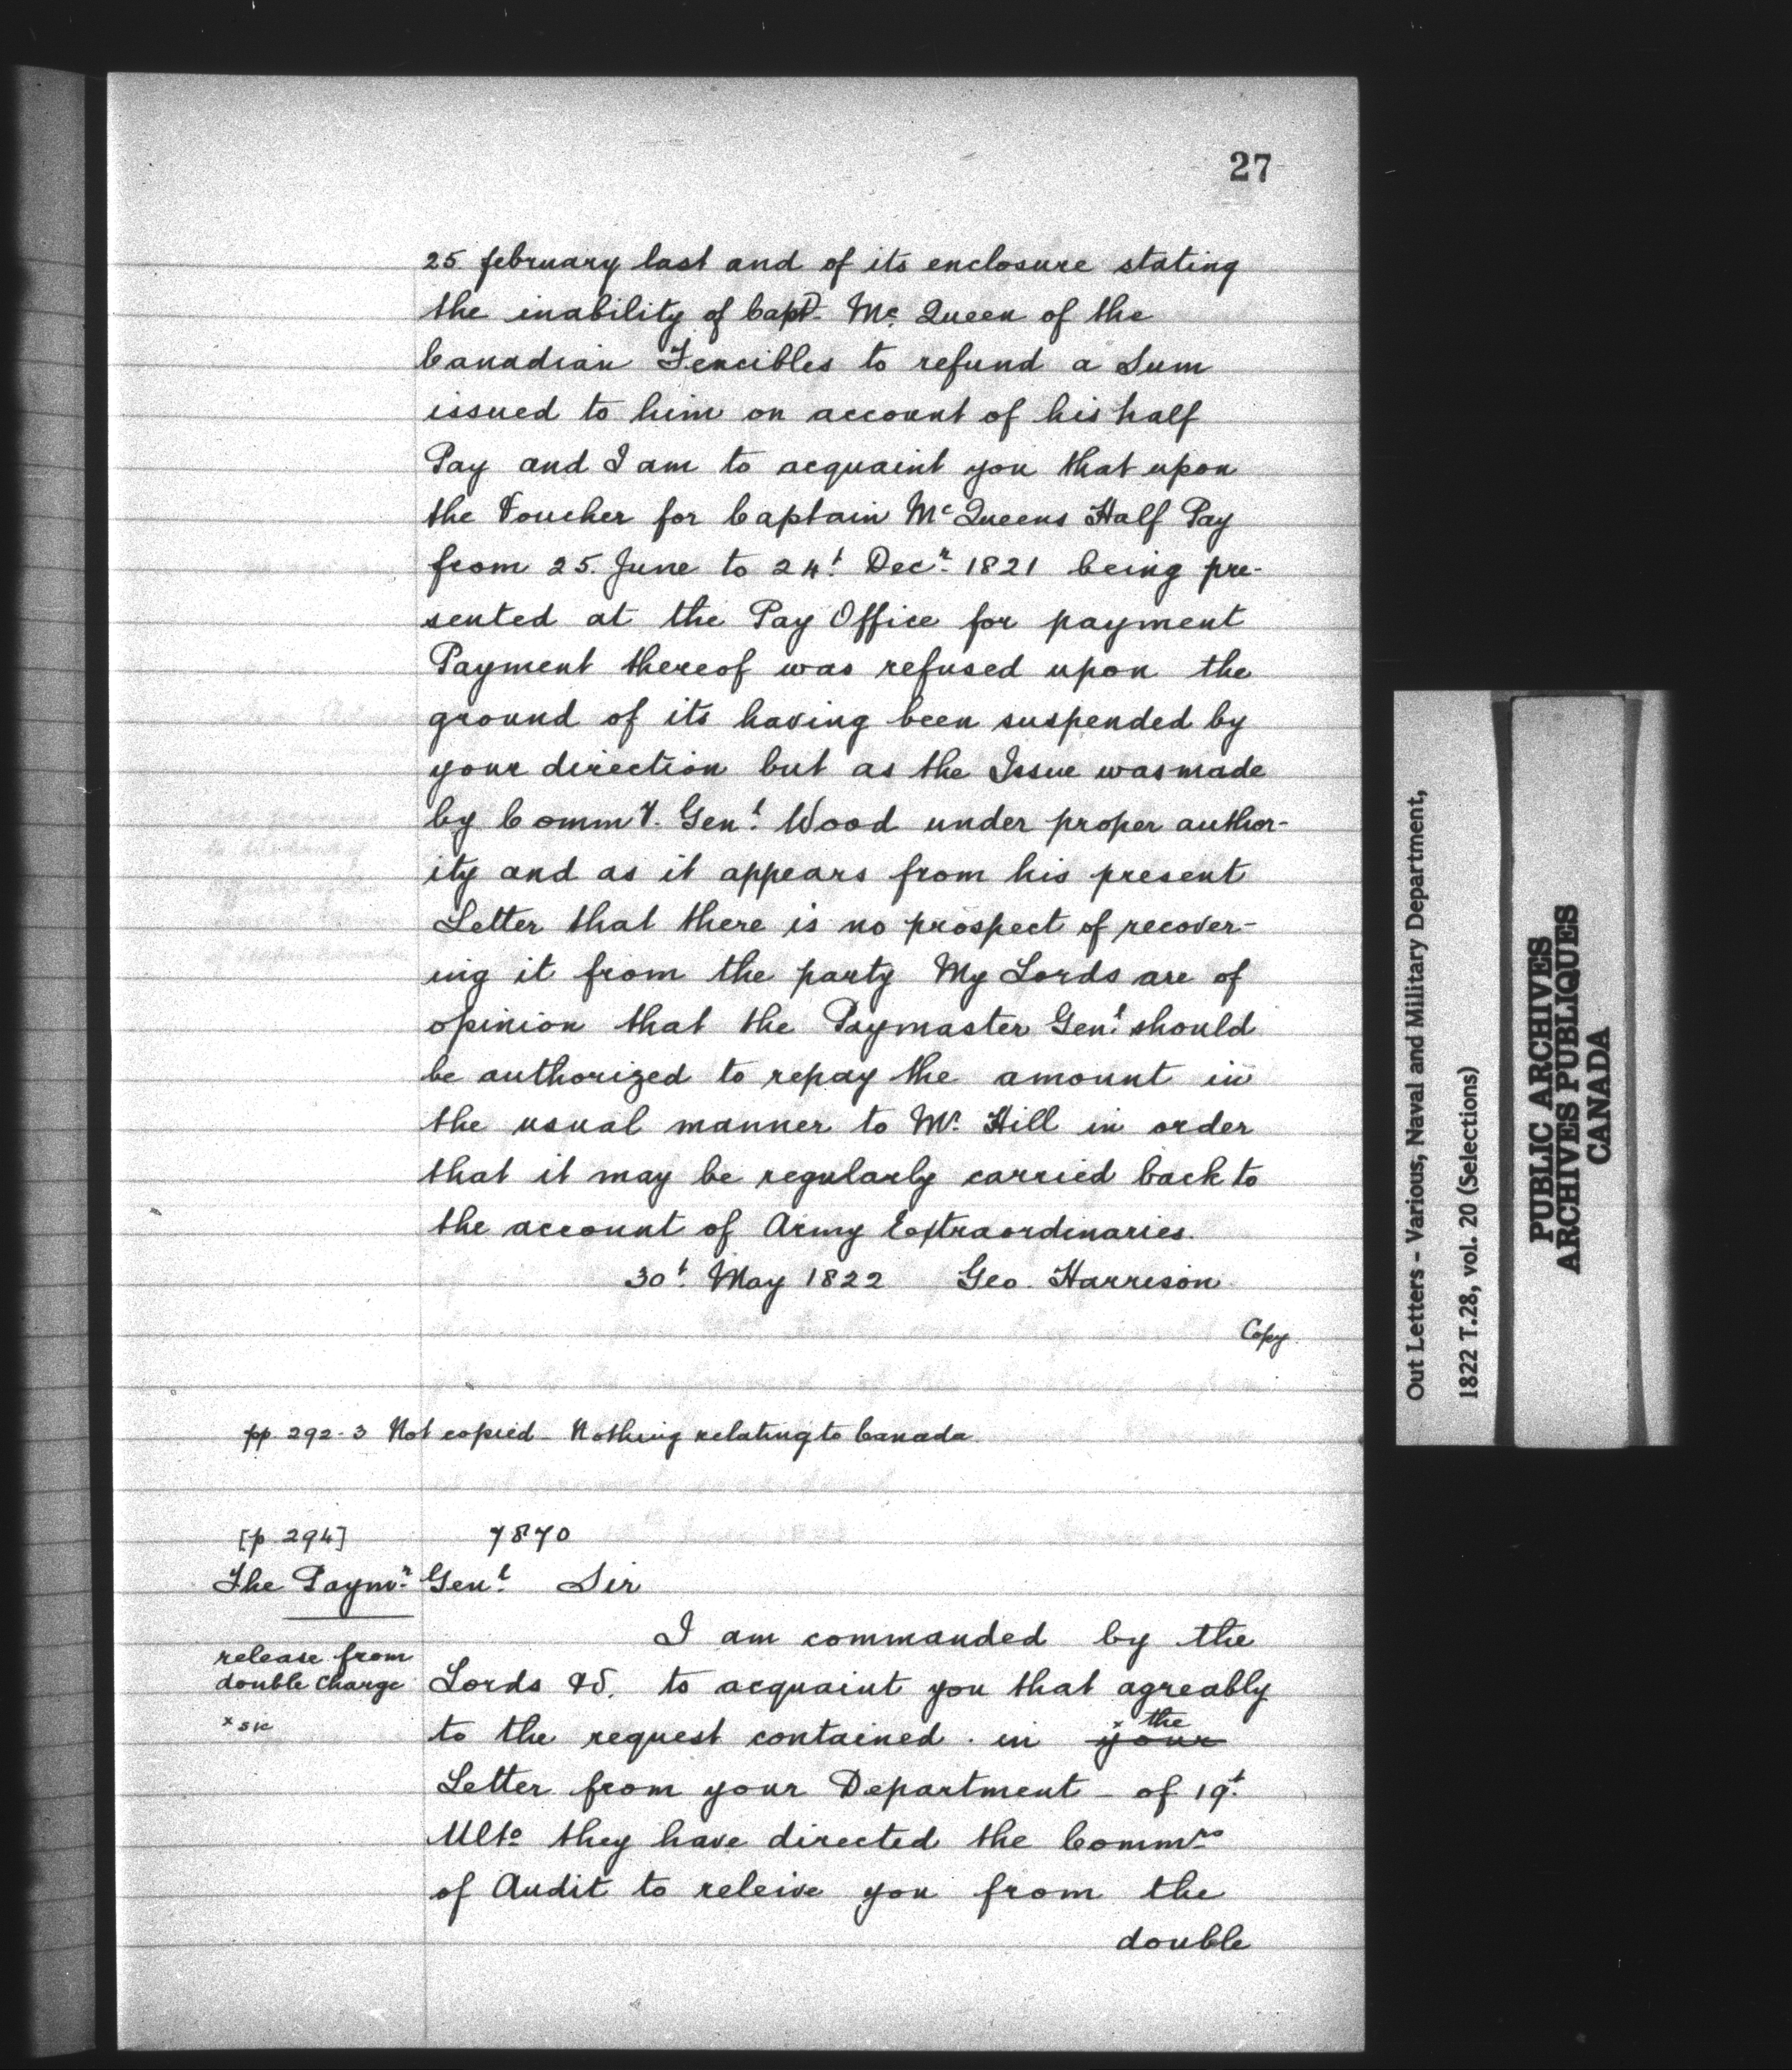 27
25. february last and of its enclosure stating
the inability of Capt. Mc. Queen of the
Canadian Fencibles to refund a Sum
issued to him on account of his half
Pay and I am to acquaint you that upon
the Voucher for Captain Mc Queens Half Pay
from 25. June to 24t. Decr. 1821 being pre-
sented at the Pay Office for payment
Payment thereof was refused upon the
ground of its having been suspended by
your direction but as the Issue was made
by Commy. Genl. Wood under proper author-
ity and as it appears from his present
Letter that there is no prospect of recover-
ing it from the party My Lords are of
opinion that the Paymaster Genl. should
be authorized to repay the amount in
the usual manner to Mr. Hill in order
that it may be regularly carried back to
the account of Army Extraordinaries.
30t. May 1822 Geo. Harrison
Copy.
pp 292-3 Not copied - Nothing relating to Canada.
[p 294] 7870
The Paymr. Genl. Sir
I am commanded by the
release from
double charge
Lords &c. to acquaint you that agreably
x sic
to the request contained in x your the
Letter from your Department - of 19t.
Ulto. they have directed the Commrs.
of Audit to releive you from the
double
Out Letters - Various, Naval and Military Department,
1822 T.28, vol. 20 (Selections)
PUBLIC ARCHIVES
ARCHIVES PUBLIQUES
CANADA